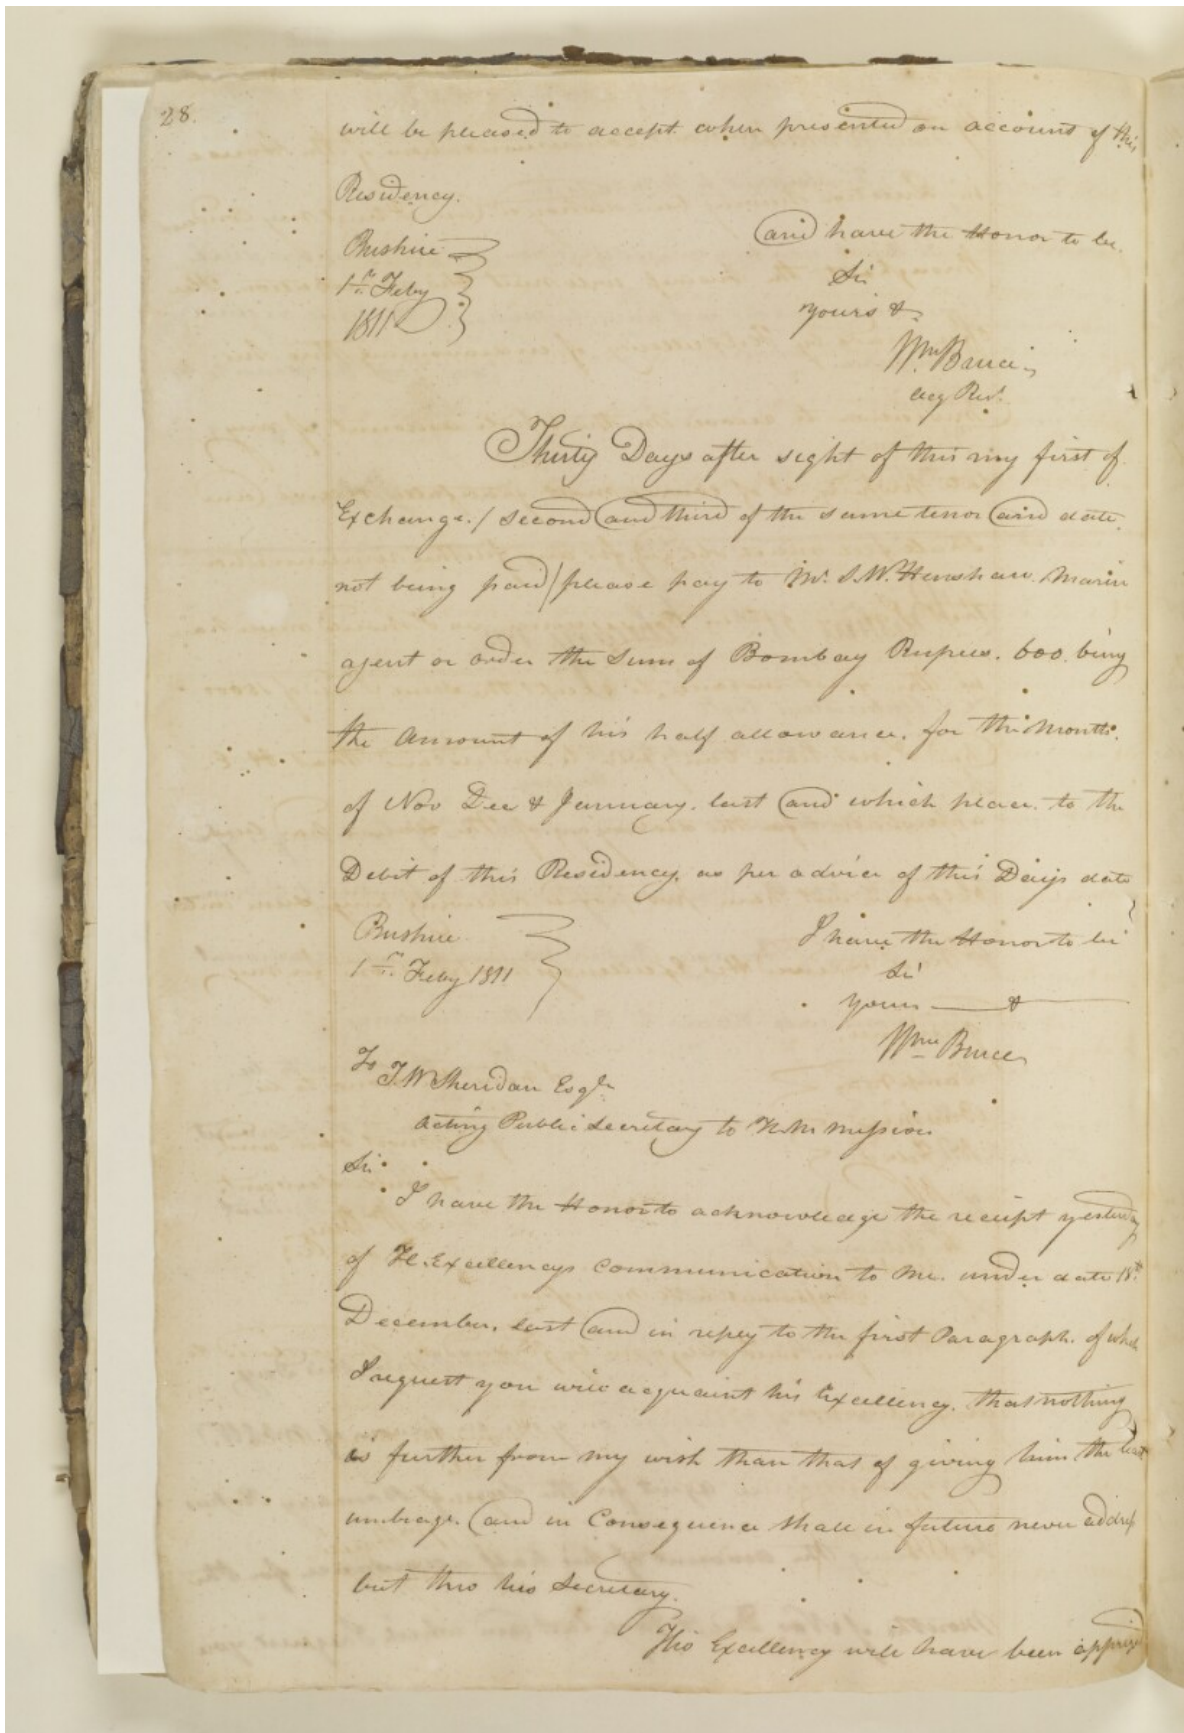 28.
will be pleased to accept when presented on account of this
Residency.
and have the Honor to be.
Bushire
Sir
1st Feby
yours &
1811
Wm Bruce
Actg Rest.
Thirty Days after sight of this my first of
Exchange / second and third of the same tenor and date
not being paid / please pay to Mr. S. W. Henshaw Marine
agent or order the Sum of Bombay Rupees. 600. being
the amount of his half allowance. for the Months.
of Nov Dec & January. last and which place. to the
Debit of this Residency. as per advice of this Days date
Bushire
I have the Honor to be
1st. Feby 1811
Sir
yours &
Wm Bruce
To J. W. Sheridan Esqr.
Acting Public Secretary to H. M. Mission
Sir
I have the Honor to acknowledge the receipt yesterday
of H. Excellencys Communication to me. under date 18th.
December. last and in reply to the first Paragraph. of which
I request you will acquaint his Excellency. that nothing
is further from my wish than that of giving him the least
umbrage. and in Consequence shall in future never address
but thro his Secretary.
His Excellency will have been apprized